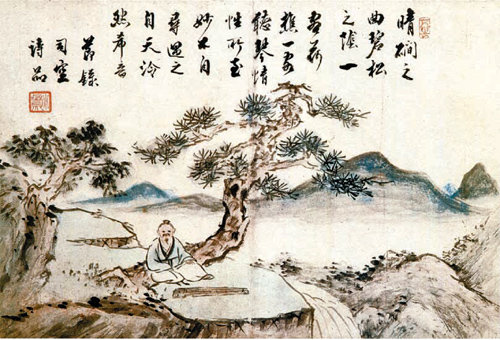 晴澗之
曲碧松
之陰一
客荷
樵一客
聽琴情
性所至
妙不自
尋遇之
自天泠
然希音
錄
司空
詩品